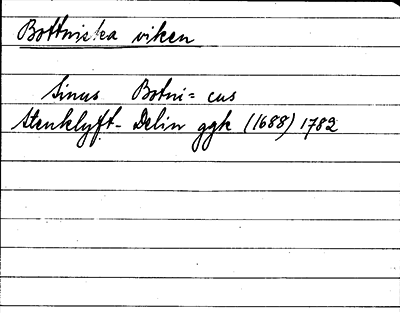 Bottniska viken
Sinus Botni= cus
Stenklyft- Delin ggk (1688) 1782